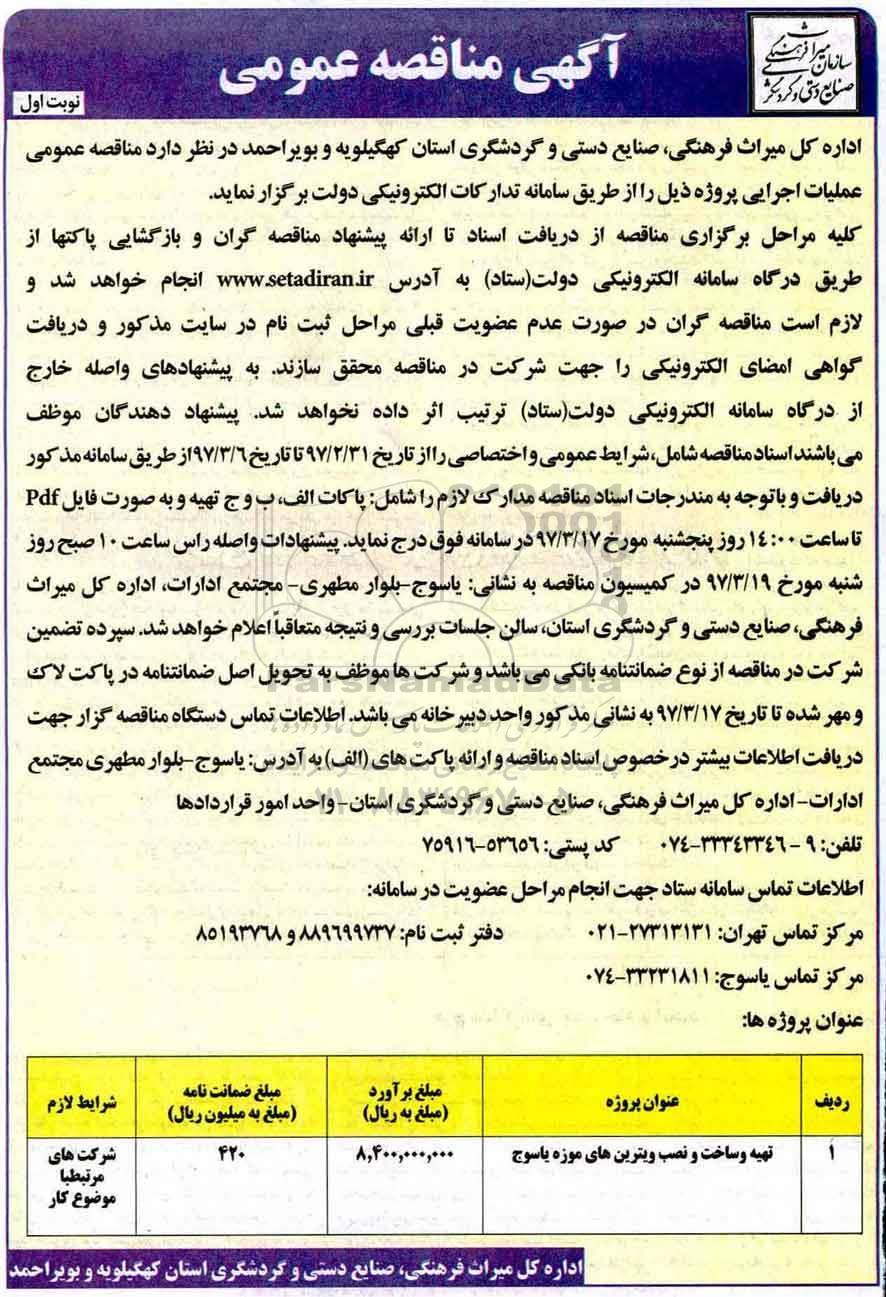 سازمان میراث فرهنگی
صنایع دستی و گردشگری
آگهی مناقصه عمومی
نوبت اول
اداره کل میراث فرهنگی، صنایع دستی و گردشگری استان کهگیلویه و بویراحمد در نظر دارد مناقصه عمومی
عملیات اجرایی پروژه ذیل را از طریق سامانه تدارکات الکترونیکی دولت برگزار نماید.
کلیه مراحل برگزاری مناقصه از دریافت اسناد تا ارائه پیشنهاد مناقصه گران و بازگشایی پاکتها از
طریق درگاه سامانه الکترونیکی دولت(ستاد) به آدرس www.setadiran.ir انجام خواهد شد و
لازم است مناقصه گران در صورت عدم عضویت قبلی مراحل ثبت نام در سایت مذکور و دریافت
گواهی امضای الکترونیکی را جهت شرکت در مناقصه محقق سازند. به پیشنهادهای واصله خارج
از درگاه سامانه الکترونیکی دولت(ستاد) ترتیب اثر داده نخواهد شد. پیشنهاد دهندگان موظف
می باشند اسناد مناقصه شامل، شرایط عمومی و اختصاصی را از تاریخ ۹۷/۲/۳۱ تا تاریخ ۹۷/۳/۶ از طریق سامانه مذکور
دریافت و باتوجه به مندرجات اسناد مناقصه مدارک لازم را شامل: پاکات الف، ب و ج تهیه و به صورت فایل Pdf
تا ساعت ۱۴:۰۰ روز پنجشنبه مورخ ۹۷/۳/۱۷ در سامانه فوق درج نماید. پیشنهادات واصله راس ساعت ۱۰ صبح روز
شنبه مورخ ۹۷/۳/۱۹ در کمیسیون مناقصه به نشانی: یاسوج-بلوار مطهری- مجتمع ادارات، اداره کل میراث
فرهنگی، صنایع دستی و گردشگری استان، سالن جلسات بررسی و نتیجه متعاقباً اعلام خواهد شد. سپرده تضمین
شرکت در مناقصه از نوع ضمانتنامه بانکی می باشد و شرکت ها موظف به تحویل اصل ضمانتنامه در پاکت لاک
و مهر شده تا تاریخ ۹۷/۳/۱۷ به نشانی مذکور واحد دبیرخانه می باشد. اطلاعات تماس دستگاه مناقصه گزار جهت
دریافت اطلاعات بیشتر در خصوص اسناد مناقصه و ارائه پاکت های (الف) به آدرس: یاسوج-بلوار مطهری مجتمع
ادارات- اداره کل میراث فرهنگی، صنایع دستی و گردشگری استان- واحد امور قراردادها
تلفن: ۹ - ۳۳۳۴۳۳۴۶-۰۷۴ کد پستی: ۵۳۶۵۶-۷۵۹۱۶
اطلاعات تماس سامانه ستاد جهت انجام مراحل عضویت در سامانه:
مرکز تماس تهران: ۲۷۳۱۳۱۳۱-۰۲۱ دفتر ثبت نام: ۸۸۹۶۹۹۷۳۷ و ۸۵۱۹۳۷۶۸
مرکز تماس یاسوج: ۳۳۲۳۱۸۱۱-۰۷۴
عنوان پروژه ها:
ردیف عنوان پروژه مبلغ برآورد (مبلغ به ریال) مبلغ ضمانت نامه (مبلغ به میلیون ریال) شرایط لازم
۱ تهیه وساخت و نصب ویترین های موزه یاسوج ۸,۴۰۰,۰۰۰,۰۰۰ ۴۲۰ شرکت های مرتبطبا موضوع کار
اداره کل میراث فرهنگی، صنایع دستی و گردشگری استان کهگیلویه و بویراحمد
ParsNamadData